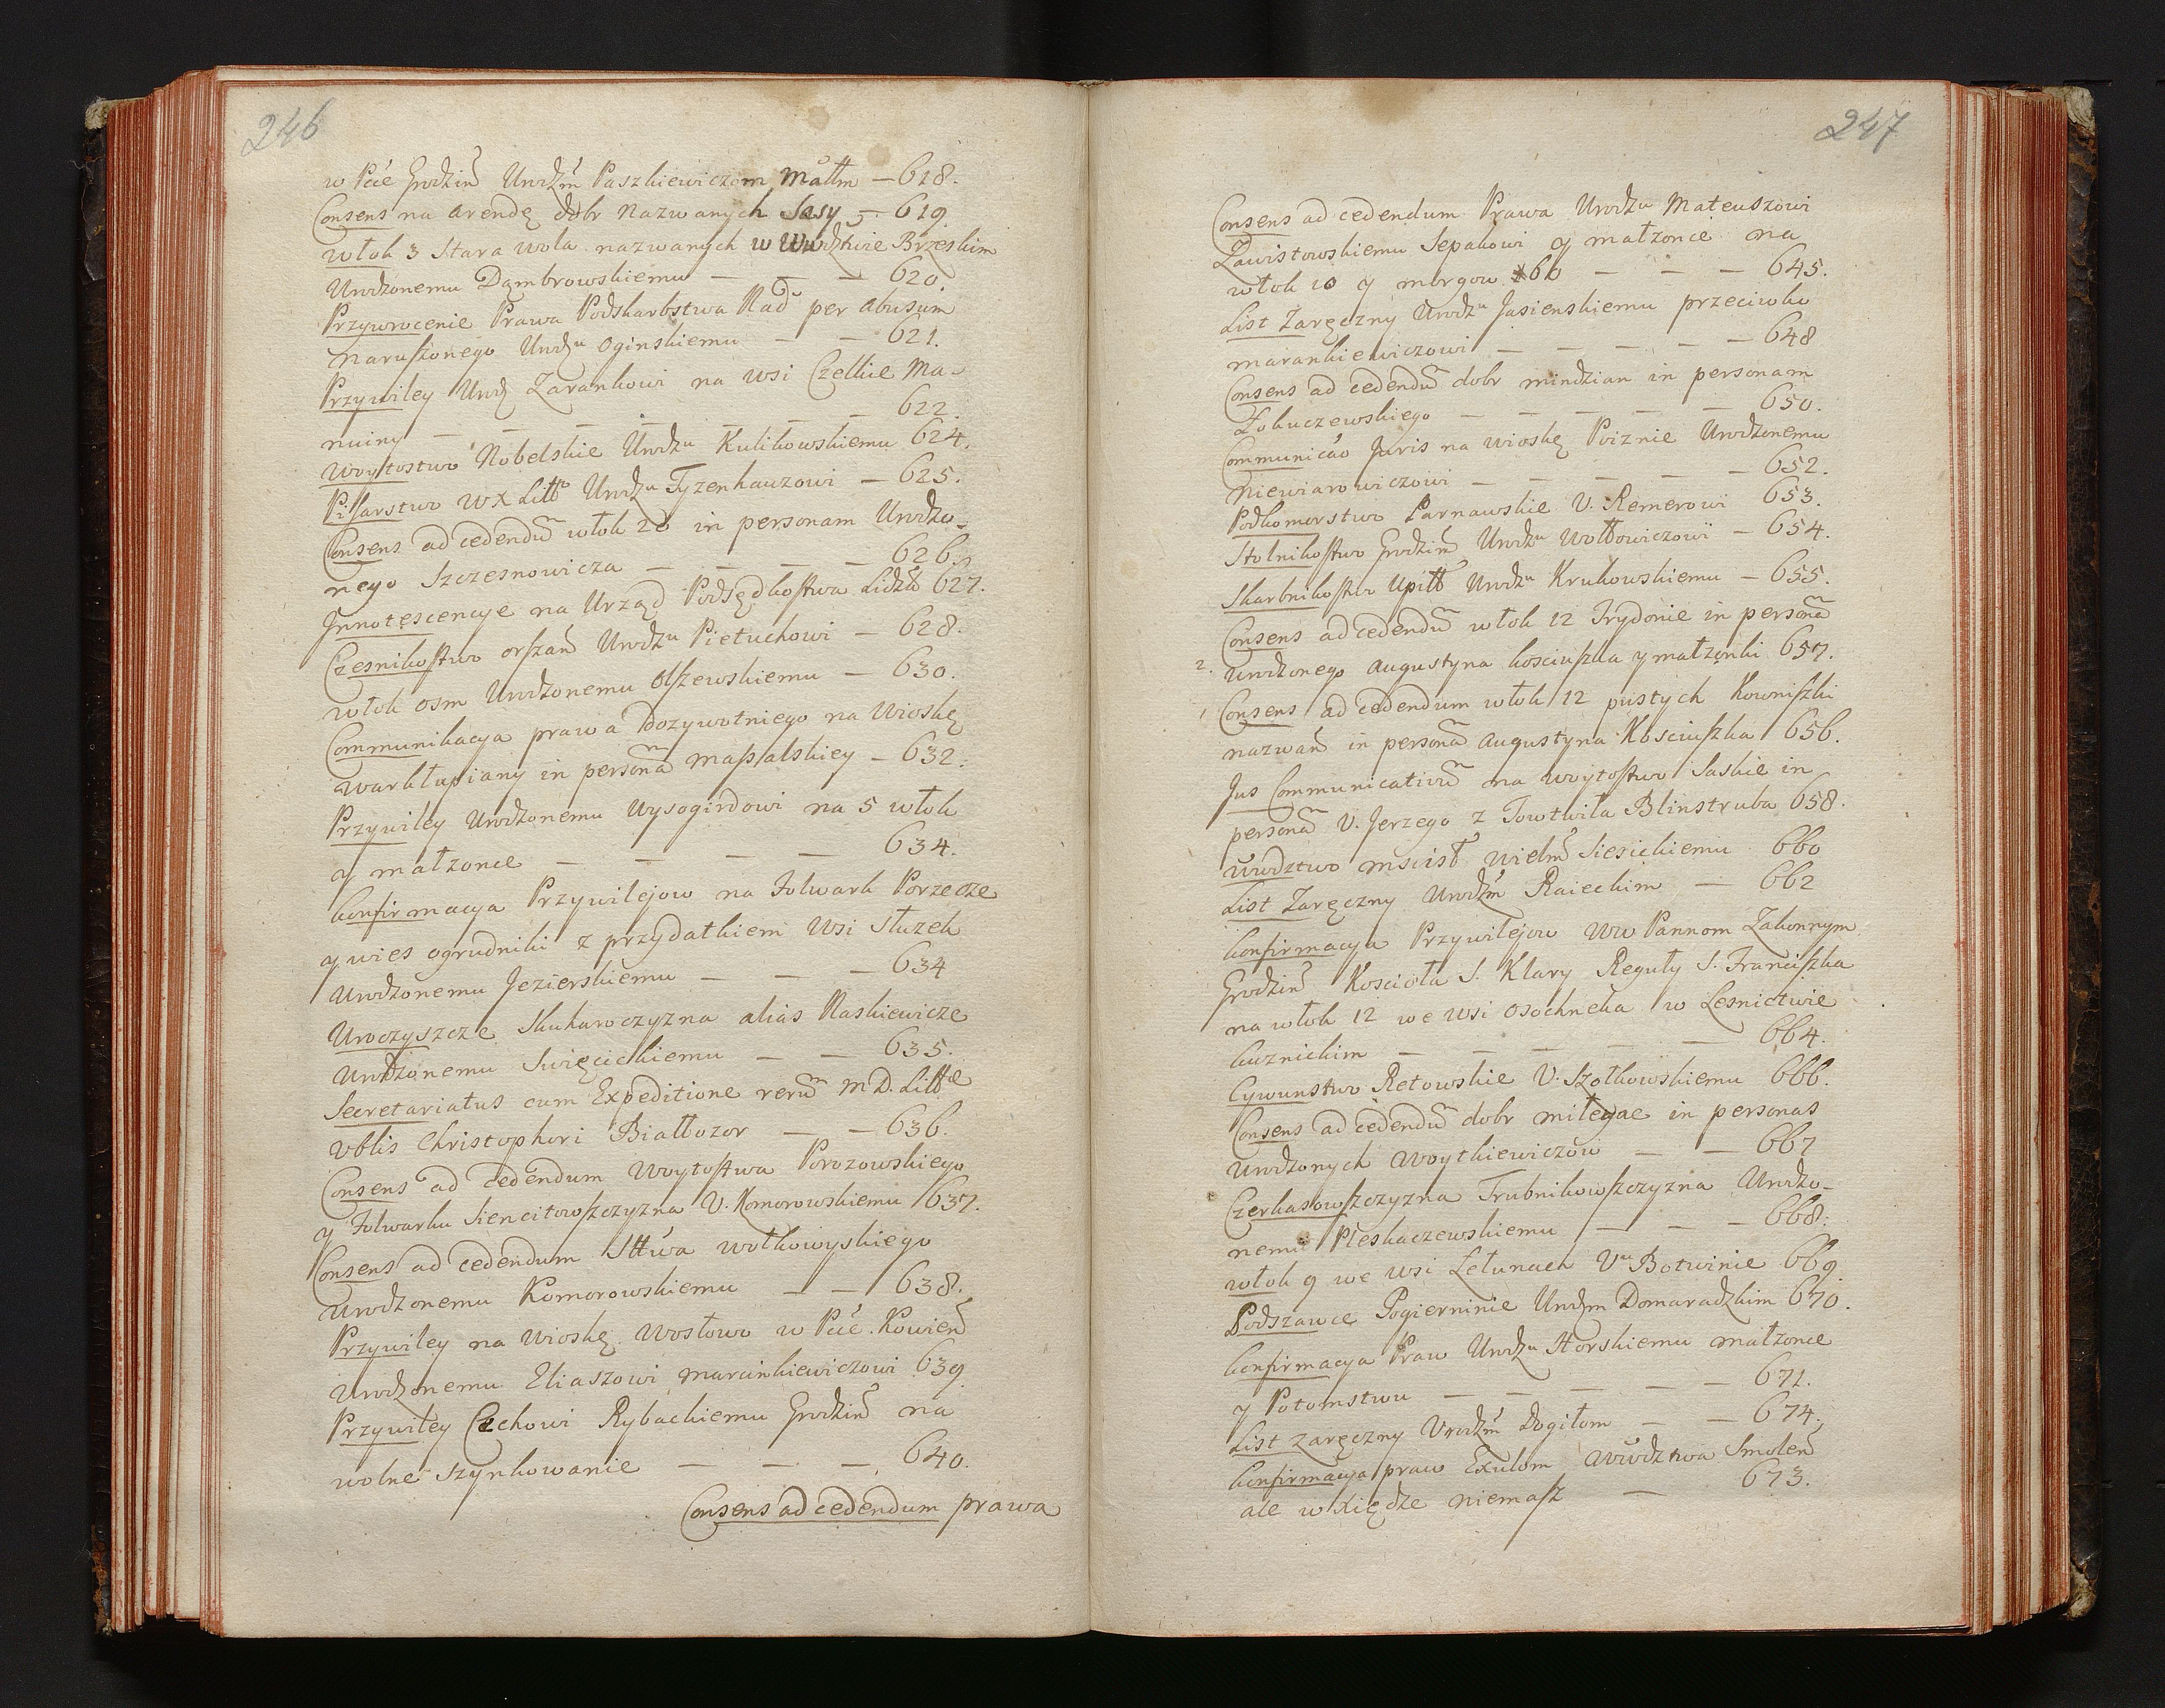 246
w Pcie Grodzin̄ Urodzm̄ Paszkiewiczom małłm — 618.
Consens na arendę dobr nazwanych Sasy 5 — 619
włok 3 Stara wola nazwanych w Wwdztwie Brzeskim
Urodzonemu Dąmbrowskiemu — — — 620.
Przywrocenie Prawa Podskarbstwa Nad̄ per abusum
naruszonego Urodzu Oginskiemu — — 621.
Przywiley Urodz Zarankowi na wsi Czelkie Ma-
nuiny — — — — — — — 622.
Woytostwo Nobelskie Urodzu Kulikowskiemu 624.
Pisarstwo WX Litto Urodzu Tyzenhauzowi — 625.
Consens ad cedendū włok 20 in personam Urodzo-
nego Szczesnowicza — — — — 626.
Innotescencye na Urząd Podsędkostwa Lidzk 627.
Czesnikostwo orszań Urodzu Pietuchowi — 628.
włok osm Urodzonemu Olszewskiemu — 630.
Communikacya prawa dozywotniego na Wioskę
Warkłupiany in personā massalskiey — 632.
Przywiley Urodzonemu Wysogirdowi na 5 włok
y małzonce — — — — 634.
Konfirmacya Przywilejow na Folwark Porzecze
y wies ogrudniki z przydatkiem Wsi Służek
Urodzonemu Jezierskiemu — — — 634
Uroczyszcze Skukarwczyzna alias Raskiewicze
Urodzonemu Swięcickiemu — — 635.
Secretariatus cum Expeditione rerū M D. Littæ
Vblis Christophori Białłozor — — 636.
Consens ad cedendum Woytostwa Porozowskiego
y Folwarku Siencitowszczyzna V. Komorowskiemu 637.
Consens ad cedendum Sttwa wołkowyskiego
Urodzonemu Komorowskiemu — — 638.
Przywiley na Wioskę Wosłowo w Pcie. Kowień
Urodzonemu Eliaszowi marcinkiewiczowi 639
Przywiley Cechowi Rybackiemu Grodziń na
wolne szynkowanie — — — 640.
Consens ad cedendum prawa
247
Consens ad cedendum Prawa Urodzu Mateuszowi
Zawistowskiemu Sepakowi y małzonce na
włok 10 y morgow 60 — — — 645.
List Zaręczny Urodzu Jasienskiemu przeciwko
marankiewiczowi — — — — — 648
Consens ad cedendū dobr mindzian in personam
Zokuczewskiego — — — — — 650.
Communicao Juris na wioskę Poiznie Urodzonemu
Niewiarowiczowi — — — — — 652.
Podkomorstwo Parnawskie V. Remerowi 653.
Stolnikostwo Grodziń Urodzu Wołłowiczowi — 654.
Skarbnikostwo Upitt Urodzu Krukowskiemu — 655.
Consens ad cedendū włok 12 Trydonie in personā
2. Urodzonego augustyna kosciuszka y małzonki 657.
1 Consens ad cedendum włok 12 pustych Kowniszki
nazwań in personā augustyna Kosciuszka 656.
Jus Communicativū na woytostwo Saskie in
personā V. Jerzego z Towtwiła Blinstruba 658.
Wwdztwo mscisł wielm̄ Siesickiemu 660
List Zaręczny Urodzm̄ Raieckim — 662
Konfirmacya Przywilejow WW Pannom Zakonnym
Grodziń Kosciola S. Klary Reguły S. Franciszka
na włok 12 we wsi Osochneka w Lesnictwie
kuznickim — — — — — 664.
Cywunstwo Retowskie V. Szołkowskiemu 666.
Consens ad cedendū dobr milegae in personas
Urodzonych Woytkiewiczow — — 667
Czerkasowszczyzna Trubnikowszczyzna Urodzo-
nemu Pleskaczewskiemu — — — 668.
włok 9 we wsi Letunach Vu Botwinie 669
Podszawce Pogierninie Urodzm Domaradzkim 670.
Konfirmacya Praw Urodzu Horskiemu małzonce
y Potomstwu — — — — — 671.
List Zaręczny Vrodzm̄ Dogiłom — — 674.
Konfirmacya praw Exulom Wwdztwa Smoleń
ale w Xiędze niemasz — 673.